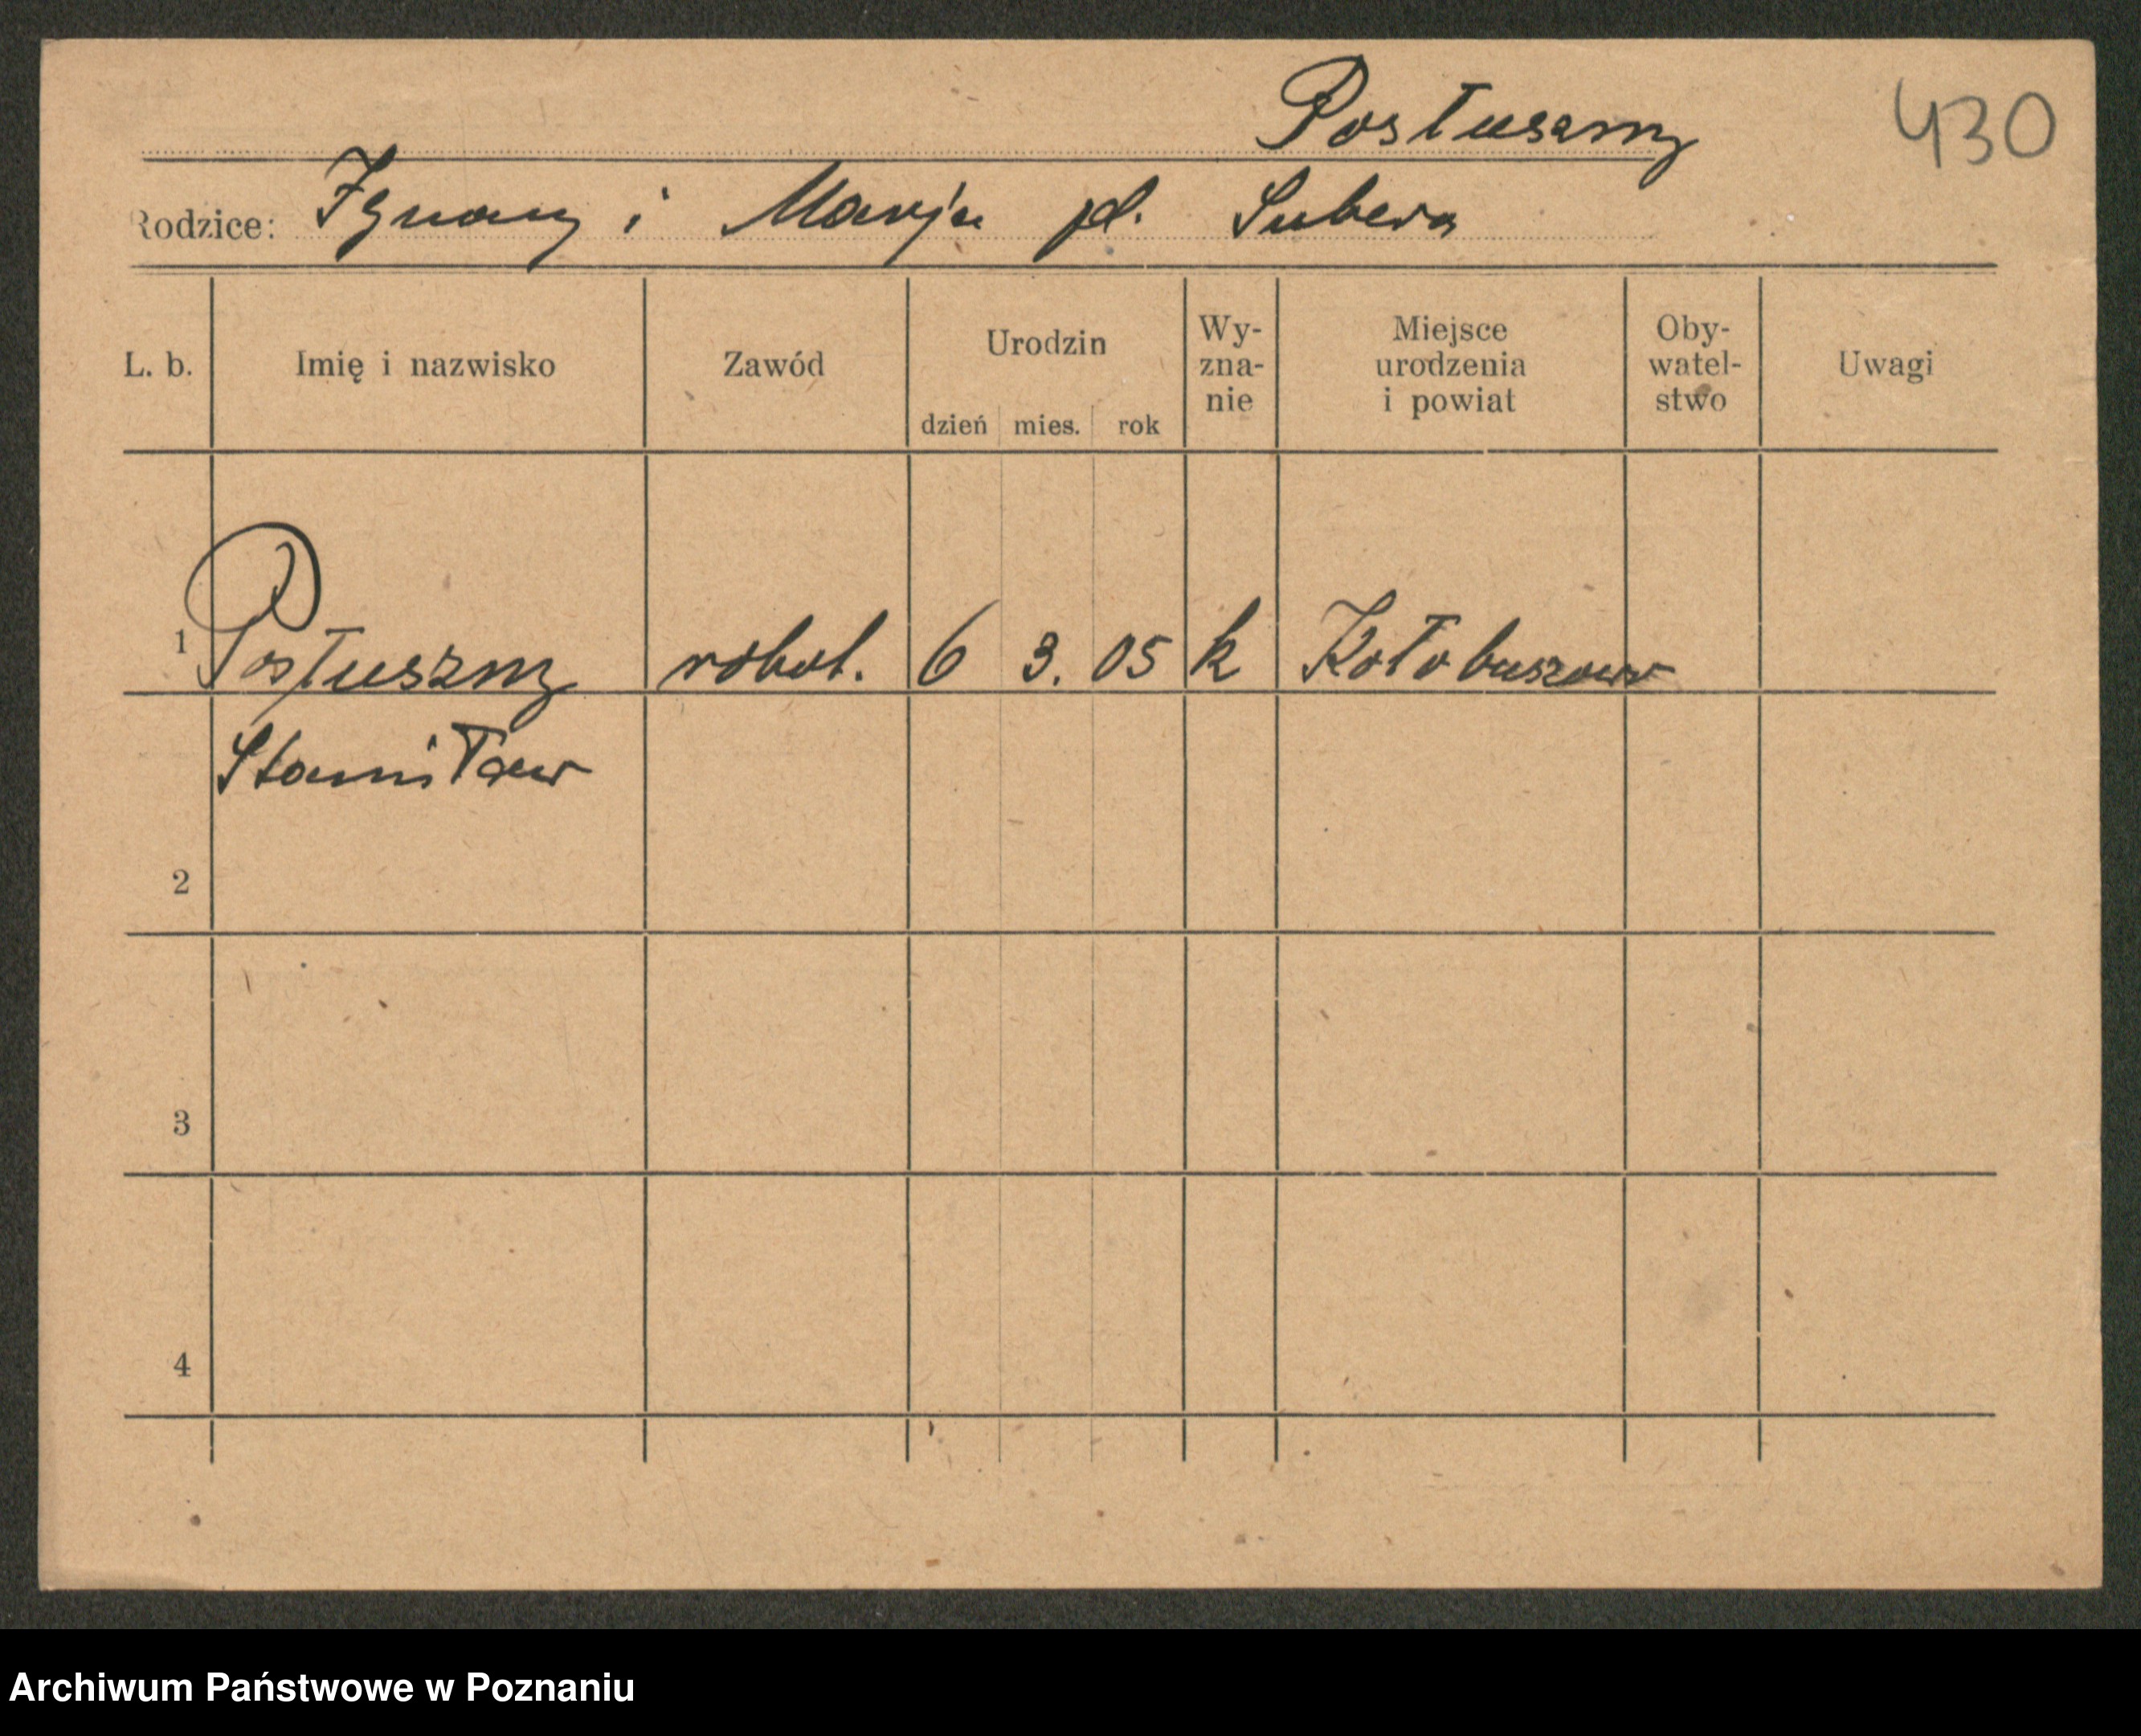 Posłuszny 430
Rodzice: Ignacy i Marja pł. Subera
L. b. Imię i nazwisko Zawód Urodzin dzień mies. rok Wy-zna-nie Miejsce urodzenia i powiat Oby-watel-stwo Uwagi
1 Posłuszny robot. 6 3. 05 k Kołobuszowa
Stanisław
2
3
4
Archiwum Państwowe w Poznaniu